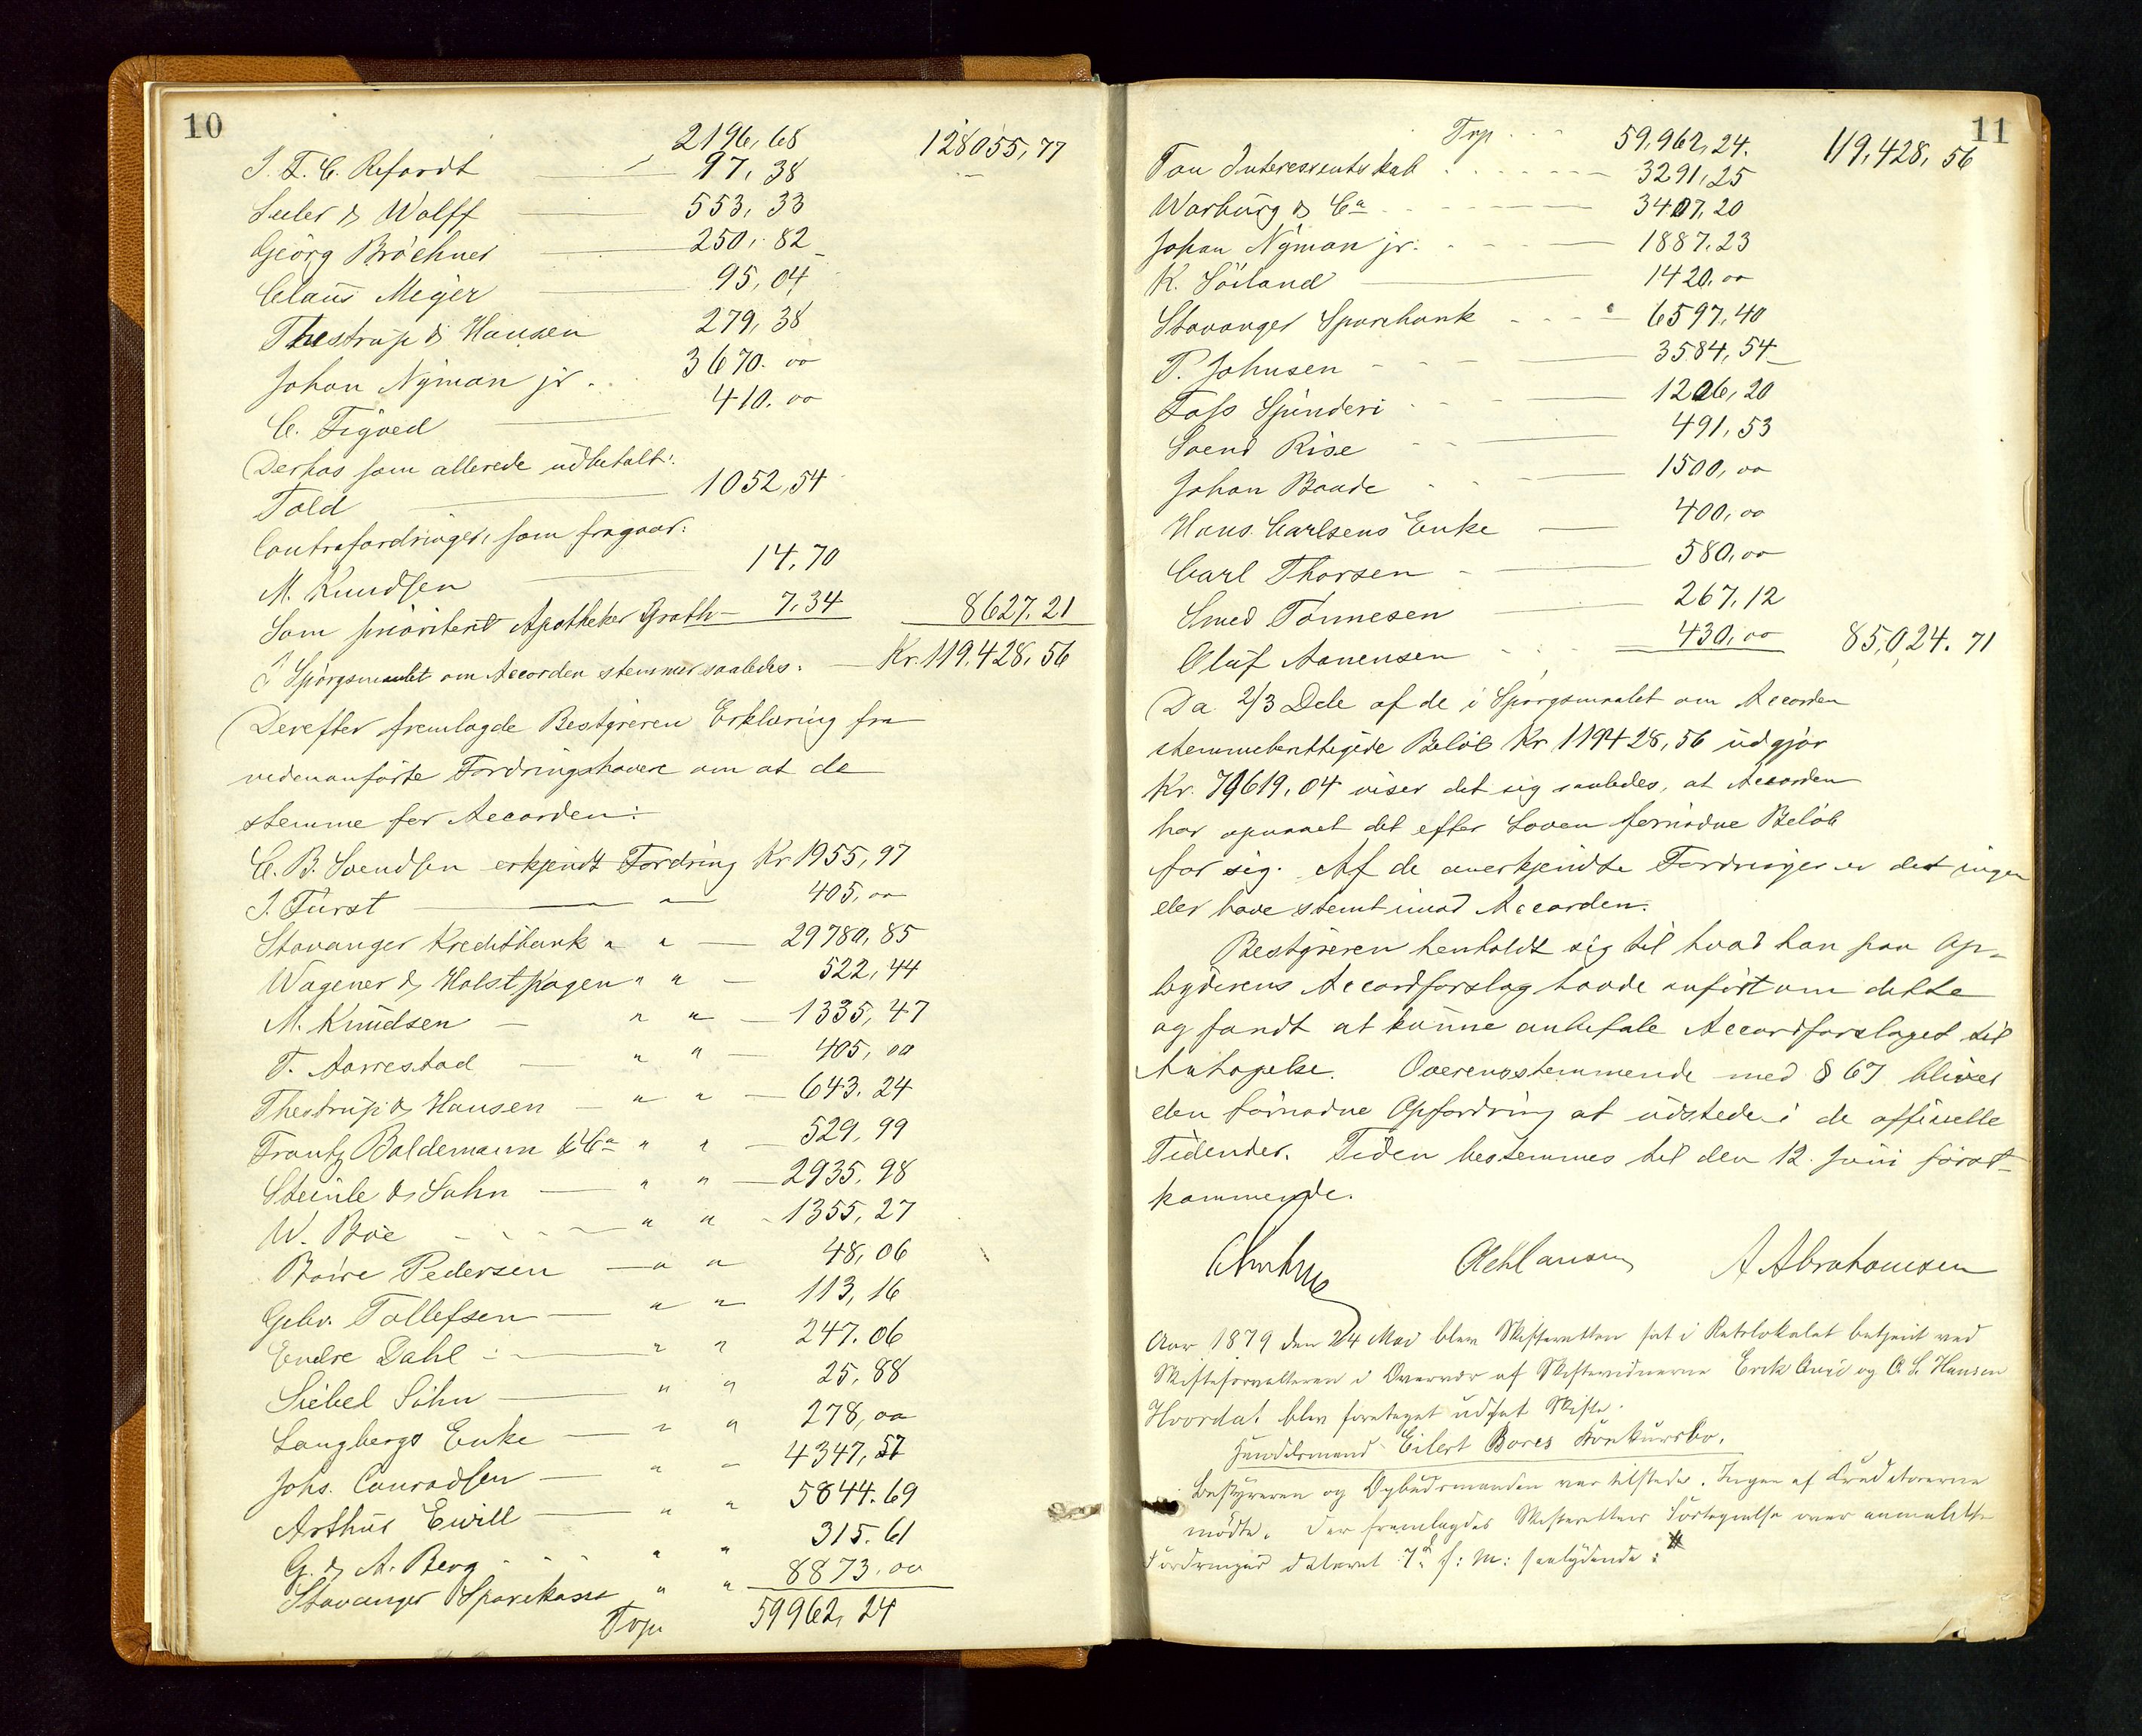 10
2196,68 128055,77
J. F. C. Refardt 97,38
Seeler & Wolff 553,33
Georg Bröchner 250,82
Claus Meyer 95,04
Thestrup & Hansen 279,38
Johan Nyman jr. 3670.00
C. Tigved 410.00
Derhos som allerede udbetalt:
Told 1052,54
Contrafordringer, som fragaar:
M. Knudsen 14,70
Som prioriteret Apotheker Groth 7,34 8627.21
I Spörgsmaalet om Accorden stemmer saaledes: Kr. 119,428,56
Derefter fremlagde Bestyreren Erklæring fra
nedenanförte Fordringshavere om at de
stemme for Accorden:
C. B. Svendsen erkjendt Fordring Kr 1955,97
J. Fürst " 405,00
Stavanger Kreditbank " " 29780,85
Wagener & Holst " " 522,44
M. Knudsen " " 1335,47
T. Aarrestad " " 405,00
Thestrup & Hansen " " 643.24
Frantz Baldemann & Ca " " 529,99
Steinle & Sohn " " 2935,98
W. Boe " " 1355,27
Börre Pedersen " " 48,06
Gebr. Tollefsen " " 113,16
Endre Dahl " " 247.06
Siebel Sohn " " 25,88
Langbergs Enke " " 278,00
Johs. Conradsen " " 4347,57
Arthur Ewill " " 5844.69
G. & A. Berg " " 315.61
Stavanger Sparekasse " " 8873.00
Trp 59962,24
11
Trp 59,962,24. 119,428,56
Tou Interessentskab 3291,25
Warburg & Ca 3407,20
Johan Nyman jr. 1887,23
K. Söiland 1420,00
Stavanger Sparebank 6597,40
P. Johnsen 3584,54
Foss Spinderi 1206,20
Svend Rise 491,53
Johan Baade 1500,00
Hans Carlsens Enke 400,00
Carl Thorsen 580,00
Smed Tönnesen 267,12
Oluf Aanensen 430,00 85,024.71
Da 2/3 Dele af de i Spörgsmaalet om Accorden
stemmeberettigede Belöb Kr 119428,56 udgjör
Kr. 79619,04 viser det sig saaledes, at Accorden
har opnaaet det efter Loven fornödne Belöb
for sig. Af de anerkjendte Fordringer er det ingen
der have stemt imod Accorden.
Bestyreren henholdt sig til hvad han paa Op-
byderens Accordforslag havde anfört om dette
og fandt at kunne anbefale Accordforslaget til
Antagelse. Overensstemmende med § 67 bliver
den fornödne Opfordring at udstede i de officielle
Tidender. Tiden bestemmes til den 12. Juni först-
kommende.
A Abrahamsen
Aar 1879 den 24 Mai blev Skifteretten sat i Retslokalet betjent ved
Skifteforvalteren i Overvær af Skiftevidnerne Erik Aue og A. L. Hansen
Hvorda! blev foretaget udsat Skifte.
Handelsmand Eilert Bores Konkursbo.
Bestyreren og Opbudsmanden var tilstede. Ingen af Kreditorerne
mödte. Der fremlagdes Skifterettens Fortegnelse over anmeldte
Fordringer dateret 7de f: M: saalydende: #